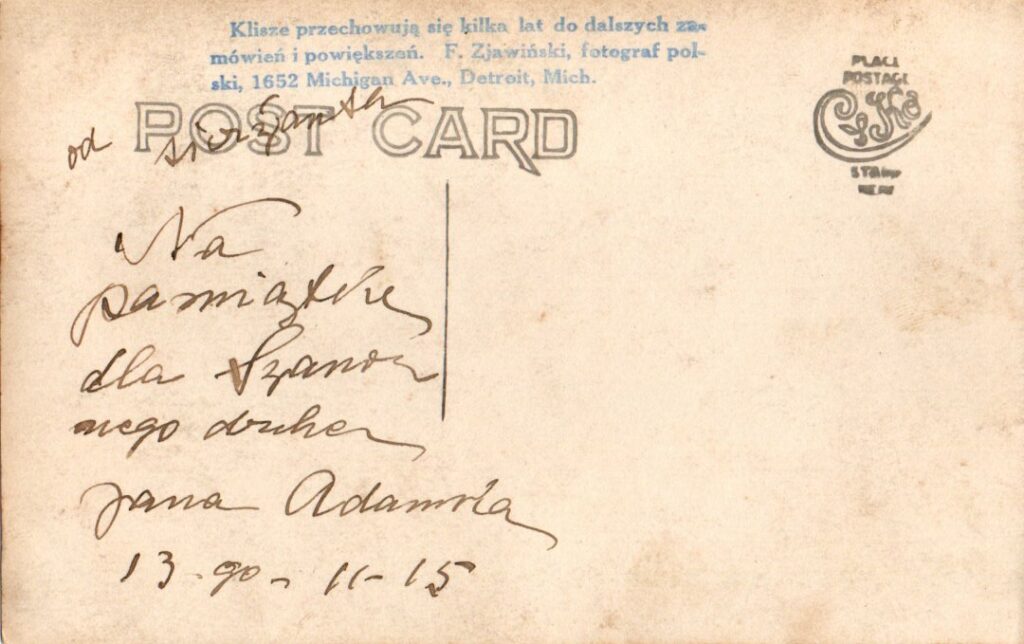 Klisze przechowują się kilka lat do dalszych za-
mówień i powiększeń. F. Zjawiński, fotograf pol-
ski, 1652 Michigan Ave., Detroit, Mich.
POST CARD
PLACE
POSTAGE
STAMP
HERE
od sierżanta
Na
pamiątkę
dla Szanow
nego druha
Jana Adamka
13-go- 11-15